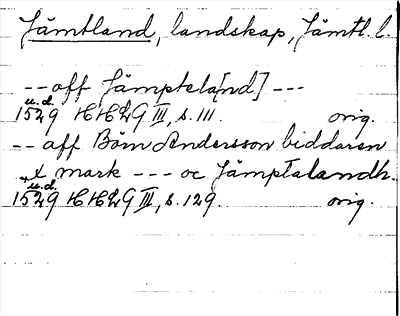 Jämtland, landskap, Jämtl. l.
-- off Jämptela[nd] ---
u.d.
1529 HH29 III, s. 111. orig.
-- aff Börn Andersson biddaren
x mark --- oc Jämptalandh.
u.d.
1529 HH29 III, s. 129. orig.